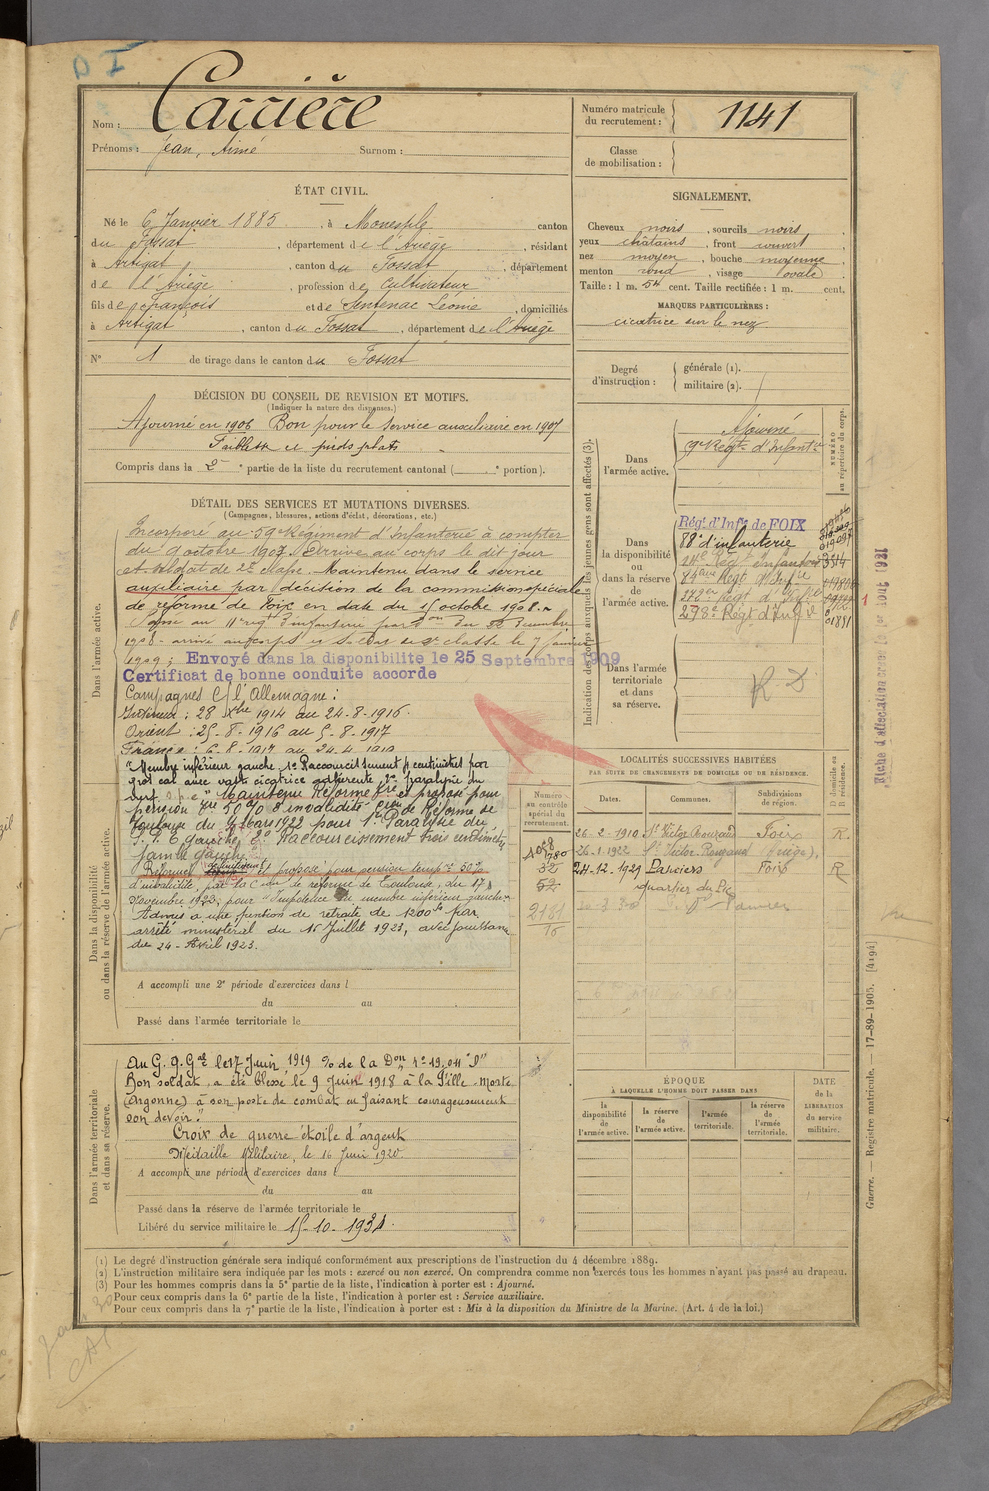 D I
Nom : Carrière
Prénoms : Jean, Aimé Surnom :
Numéro matricule du recrutement : 1141
Classe de mobilisation :
ÉTAT CIVIL.
Né le 6 Janvier 1885, à Monesple canton
du Fossat, département de l'Ariège, résidant
à Artigat, canton du Fossat, département
de l'Ariège, profession de Cultivateur
fils de François et de Sentenac Léonie, domiciliés
à Artigat, canton du Fossat, département de l'Ariège
N° 1 de tirage dans le canton du Fossat
SIGNALEMENT.
Cheveux noirs, sourcils noirs,
yeux chatains, front couvert,
nez moyen, bouche moyenne,
menton rond, visage ovale,
Taille : 1 m. 54 cent. Taille rectifiée : 1 m. cent.
MARQUES PARTICULIÈRES :
cicatrice sur le nez
Degré d'instruction : générale (1).
militaire (2).
DÉCISION DU CONSEIL DE REVISION ET MOTIFS.
(Indiquer la nature des dispenses.)
Ajourné en 1906 Bon pour le service auxiliaire en 1907
Faiblesse et pieds plats
Compris dans la 2e partie de la liste du recrutement cantonal ( e portion).
DÉTAIL DES SERVICES ET MUTATIONS DIVERSES.
(Campagnes, blessures, actions d'éclat, décorations, etc.)
Dans l'armée active.
Incorporé au 59e Régiment d'Infanterie à compter
du 9 octobre 1907. Arrivé au corps le dit jour
et soldat de 2e classe. Maintenu dans le service
auxiliaire par décision de la commission spéciale
de réforme de Foix en date du 15 octobre 1908.
Passé au 11e régt d'infanterie par don du 30 décembre
1908 - arrivé au corps et soldat de 2e classe le 7 janvier
1909; Envoyé dans la disponibilité le 25 Septembre 1909
Certificat de bonne conduite accordé
Campagnes C/ l'Allemagne :
Intérieur : 28 Xbre 1914 au 24-8-1916.
Orient : 25-8-1916 au 5-8-1917
France : 6-8-1917 au 24-4-1919
Dans la disponibilité ou dans la réserve de l'armée active.
Membre inférieur gauche 1° Raccourcissement centimètres par
gros cal avec vaste cicatrice adhérente 2° paralysie du
nerf S.P.E. Maintenu Réforme et proposé pour
pension 50% d'invalidité Con de Réforme de
Toulouse du 9 Mars 1922 pour 1° Paralysie du
S. P. E. gauche 2° Raccourcissement trois centimètres
jambe gauche
Réformé définitivement et proposé pour pension tempre 50%
d'invalidité, par la Con de réforme de Toulouse, du 17
Novembre 1923, pour "Impotence du membre inférieur gauche"
Admis à une pension de retraite de 1200f par
arrêté ministériel du 15 Juillet 1923, avec jouissance
du 24 Avril 1923.
A accompli une 2e période d'exercices dans l
du au
Passé dans l'armée territoriale le
Dans l'armée territoriale et dans sa réserve.
Au G. Q. Gal le 17 Juin 1919 % de la Don n° 19.011 "D"
Bon soldat, a été blessé le 9 Juin 1918 à la Fille-Morte
(Argonne) à son poste de combat en faisant courageusement
son devoir."
Croix de guerre étoile d'argent
Médaille Militaire, le 16 Juin 1920
A accompli une période d'exercices dans l
du au
Passé dans la réserve de l'armée territoriale le
Libéré du service militaire le 15-10-1934.
Indication des corps auxquels les jeunes gens sont affectés (3).
NUMÉRO au répertoire du corps.
Dans l'armée active.
Ajourné
9e Régt d'Infanterie
Dans la disponibilité ou dans la réserve de l'armée active.
Régt d'Infie de FOIX
88e d'infanterie
Régt Infanterie
84eme Régt d'Infie
Régt d'Infie
278e Régt d'Infie
Dans l'armée territoriale et dans sa réserve.
R. D
LOCALITÉS SUCCESSIVES HABITÉES
PAR SUITE DE CHANGEMENTS DE DOMICILE OU DE RÉSIDENCE.
Numéro au contrôle spécial du recrutement.
Dates. Communes. Subdivisions de région. D. Domicile ou R. résidence.
26-2-1910 St Victor Rouzaud Foix R.
26-1-1922 St Victor Rouzaud (Ariège),
24-12-1929 Pamiers Foix R
quartier du Pic
2181
ÉPOQUE
À LAQUELLE L'HOMME DOIT PASSER DANS
la disponibilité de l'armée active.
la réserve de l'armée active.
l'armée territoriale.
la réserve de l'armée territoriale.
DATE de la LIBÉRATION du service militaire.
Guerre. — Registre matricule. — 17-89-1905. [4194]
(1) Le degré d'instruction générale sera indiqué conformément aux prescriptions de l'instruction du 4 décembre 1889.
(2) L'instruction militaire sera indiquée par les mots : exercé ou non exercé. On comprendra comme non exercés tous les hommes n'ayant pas passé au drapeau.
(3) Pour les hommes compris dans la 5e partie de la liste, l'indication à porter est : Ajourné.
Pour ceux compris dans la 6e partie de la liste, l'indication à porter est : Service auxiliaire.
Pour ceux compris dans la 7e partie de la liste, l'indication à porter est : Mis à la disposition du Ministre de la Marine. (Art. 4 de la loi.)